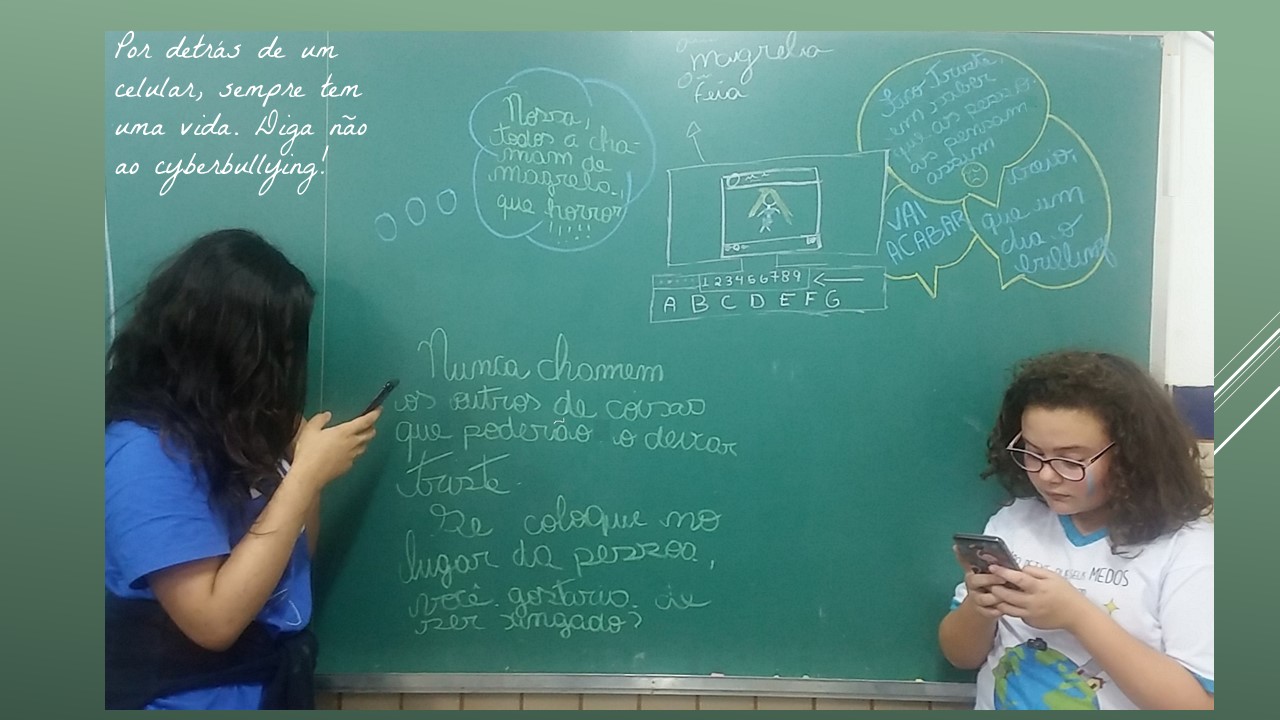 Por detrás de um
celular, sempre tem
uma vida. Diga não
ao cyberbullying!
magrela
Feia
Nossa,
todos a cha-
mam de
magrela,
que horror
!!!!!
Fico Triste,
em saber
que as pessoas
as pensam
assim
VAI
ACABAR
que um
dia o
bulling
123456789
A B C D E F G
Nunca chamem
os outros de coisas
que poderão o deixar
triste.
Se coloque no
lugar da pessoa,
você gostaria de
ser xingado?
MEDOS